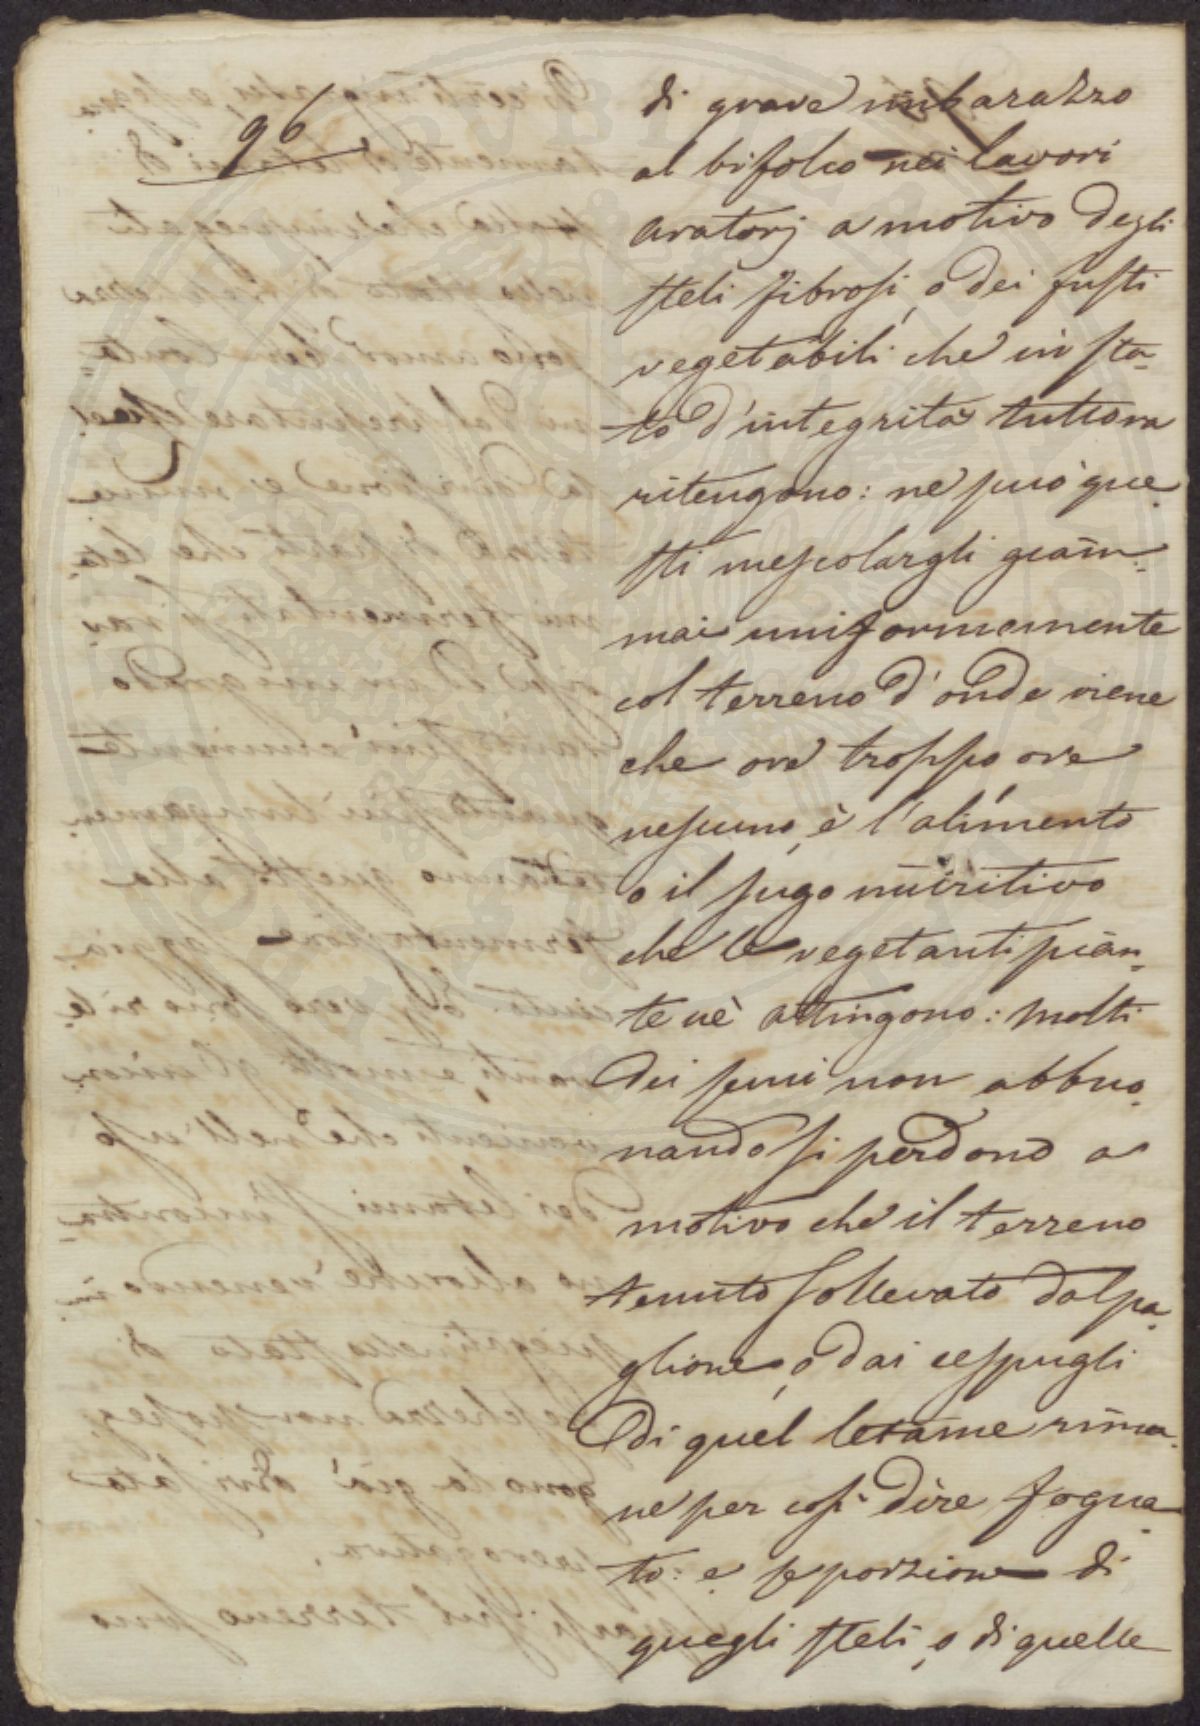 96
di grave imbarazzo
al bifolco nei lavori
aratorj a motivo degli
steli fibrosi, o dei fusti
vegetabili che in sta-
to d'integrità tuttora
ritengono: ne può que-
sti mescolargli giam-
mai uniformemente
col terreno d'onde viene
che ove troppo ove
nessuno, è l'alimento
o il sugo nutritivo
che le vegetanti pian-
te nè attingono: molti
dei semi non abbuo-
nandosi perdono a
motivo che il terreno
tenuto sollevato dal pa-
glione, o dai cespugli
di quel letame rima-
ne per così dire fogna-
to: e se porzione di
quegli steli, o di quelle